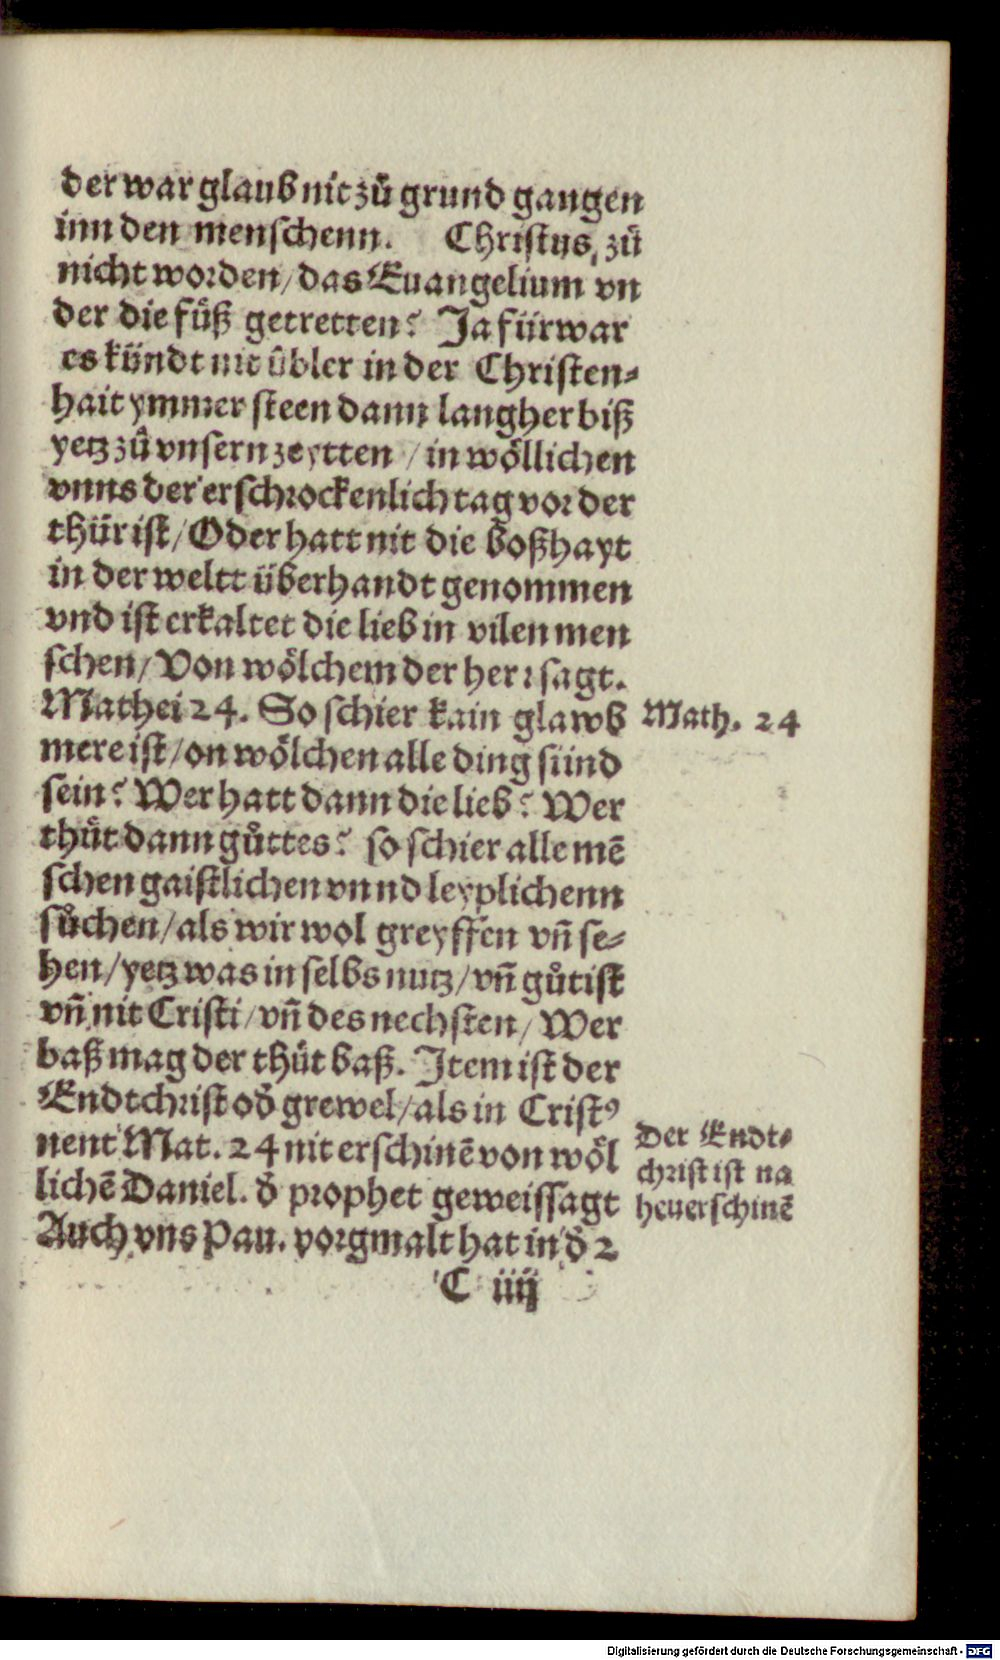 der war glaub nit zů grund gangen
inn den menschenn. Christus, zů
nicht worden/das Euangelium vn
der die füß getretten? Ja fürwar
es kündt nit übler in der Christen⸗
hait ymmer steen dann langher biß
yetz zů vnsern zeytten / in wöllichen
vnns der erschrockenlich tag vor der
thür ist/Oder hatt nit die boßhayt
in der weltt überhandt genommen
vnd ist erkaltet die lieb in vilen men
schen/Von wölchem der herr sagt.
Mathei 24. So schier kain glawb
mere ist/on wölchen alle ding sünd
sein? Wer hatt dann die lieb? Wer
thůt dann gůttes? so schier alle mē
schen gaistlichen vnnd leyplichenn
sůchen/als wir wol greyffen vn̄ se⸗
hen/yetz was in selbs nutz/vn̄ gůt ist
vn̄ nit Cristi/vn̄ des nechsten/Wer
baß mag der thůt baß. Item ist der
Endtchrist oď grewel/als in Cristꝰ
nent Mat. 24 nit erschinē von wöl
lichē Daniel. ď prophet geweissagt
Auch vns Pau. vorgmalt hat in ď 2
C iiij
Math. 24
Der Endt⸗
christ ist na
heuerschinē
Digitalisierung gefördert durch die Deutsche Forschungsgemeinschaft - DFG